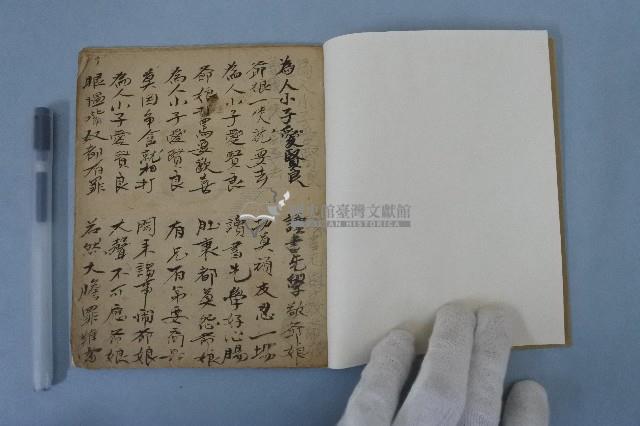 為人小子愛賢良 讀書先學敬爺娘
爺娘一哭就要去 切莫頑皮忍一場
為人小子愛賢良 讀書先學好心腸
爺娘打罵要歡喜 肚裏都莫怨爺娘
為人小子愛賢良 有兄有弟要商量
莫因爭食就相打 鬧來諸事惱爺娘
為人小子愛賢良 大聲不可應爺娘
眼瞪嘴 都有罪 若然大膽罪難當
國史館臺灣文獻館
TAIWAN HISTORICA